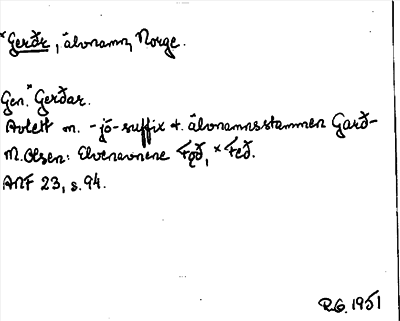 *Gerðr, älvnamn, Norge.
Gen. *Gerðar.
Avlett m. -jō-suffix t. älvnamnsstammen Garð-
M. Olsen: Elvenavnene Fǫð, *Feð.
ANF 23, s. 94.
R.G. 1951